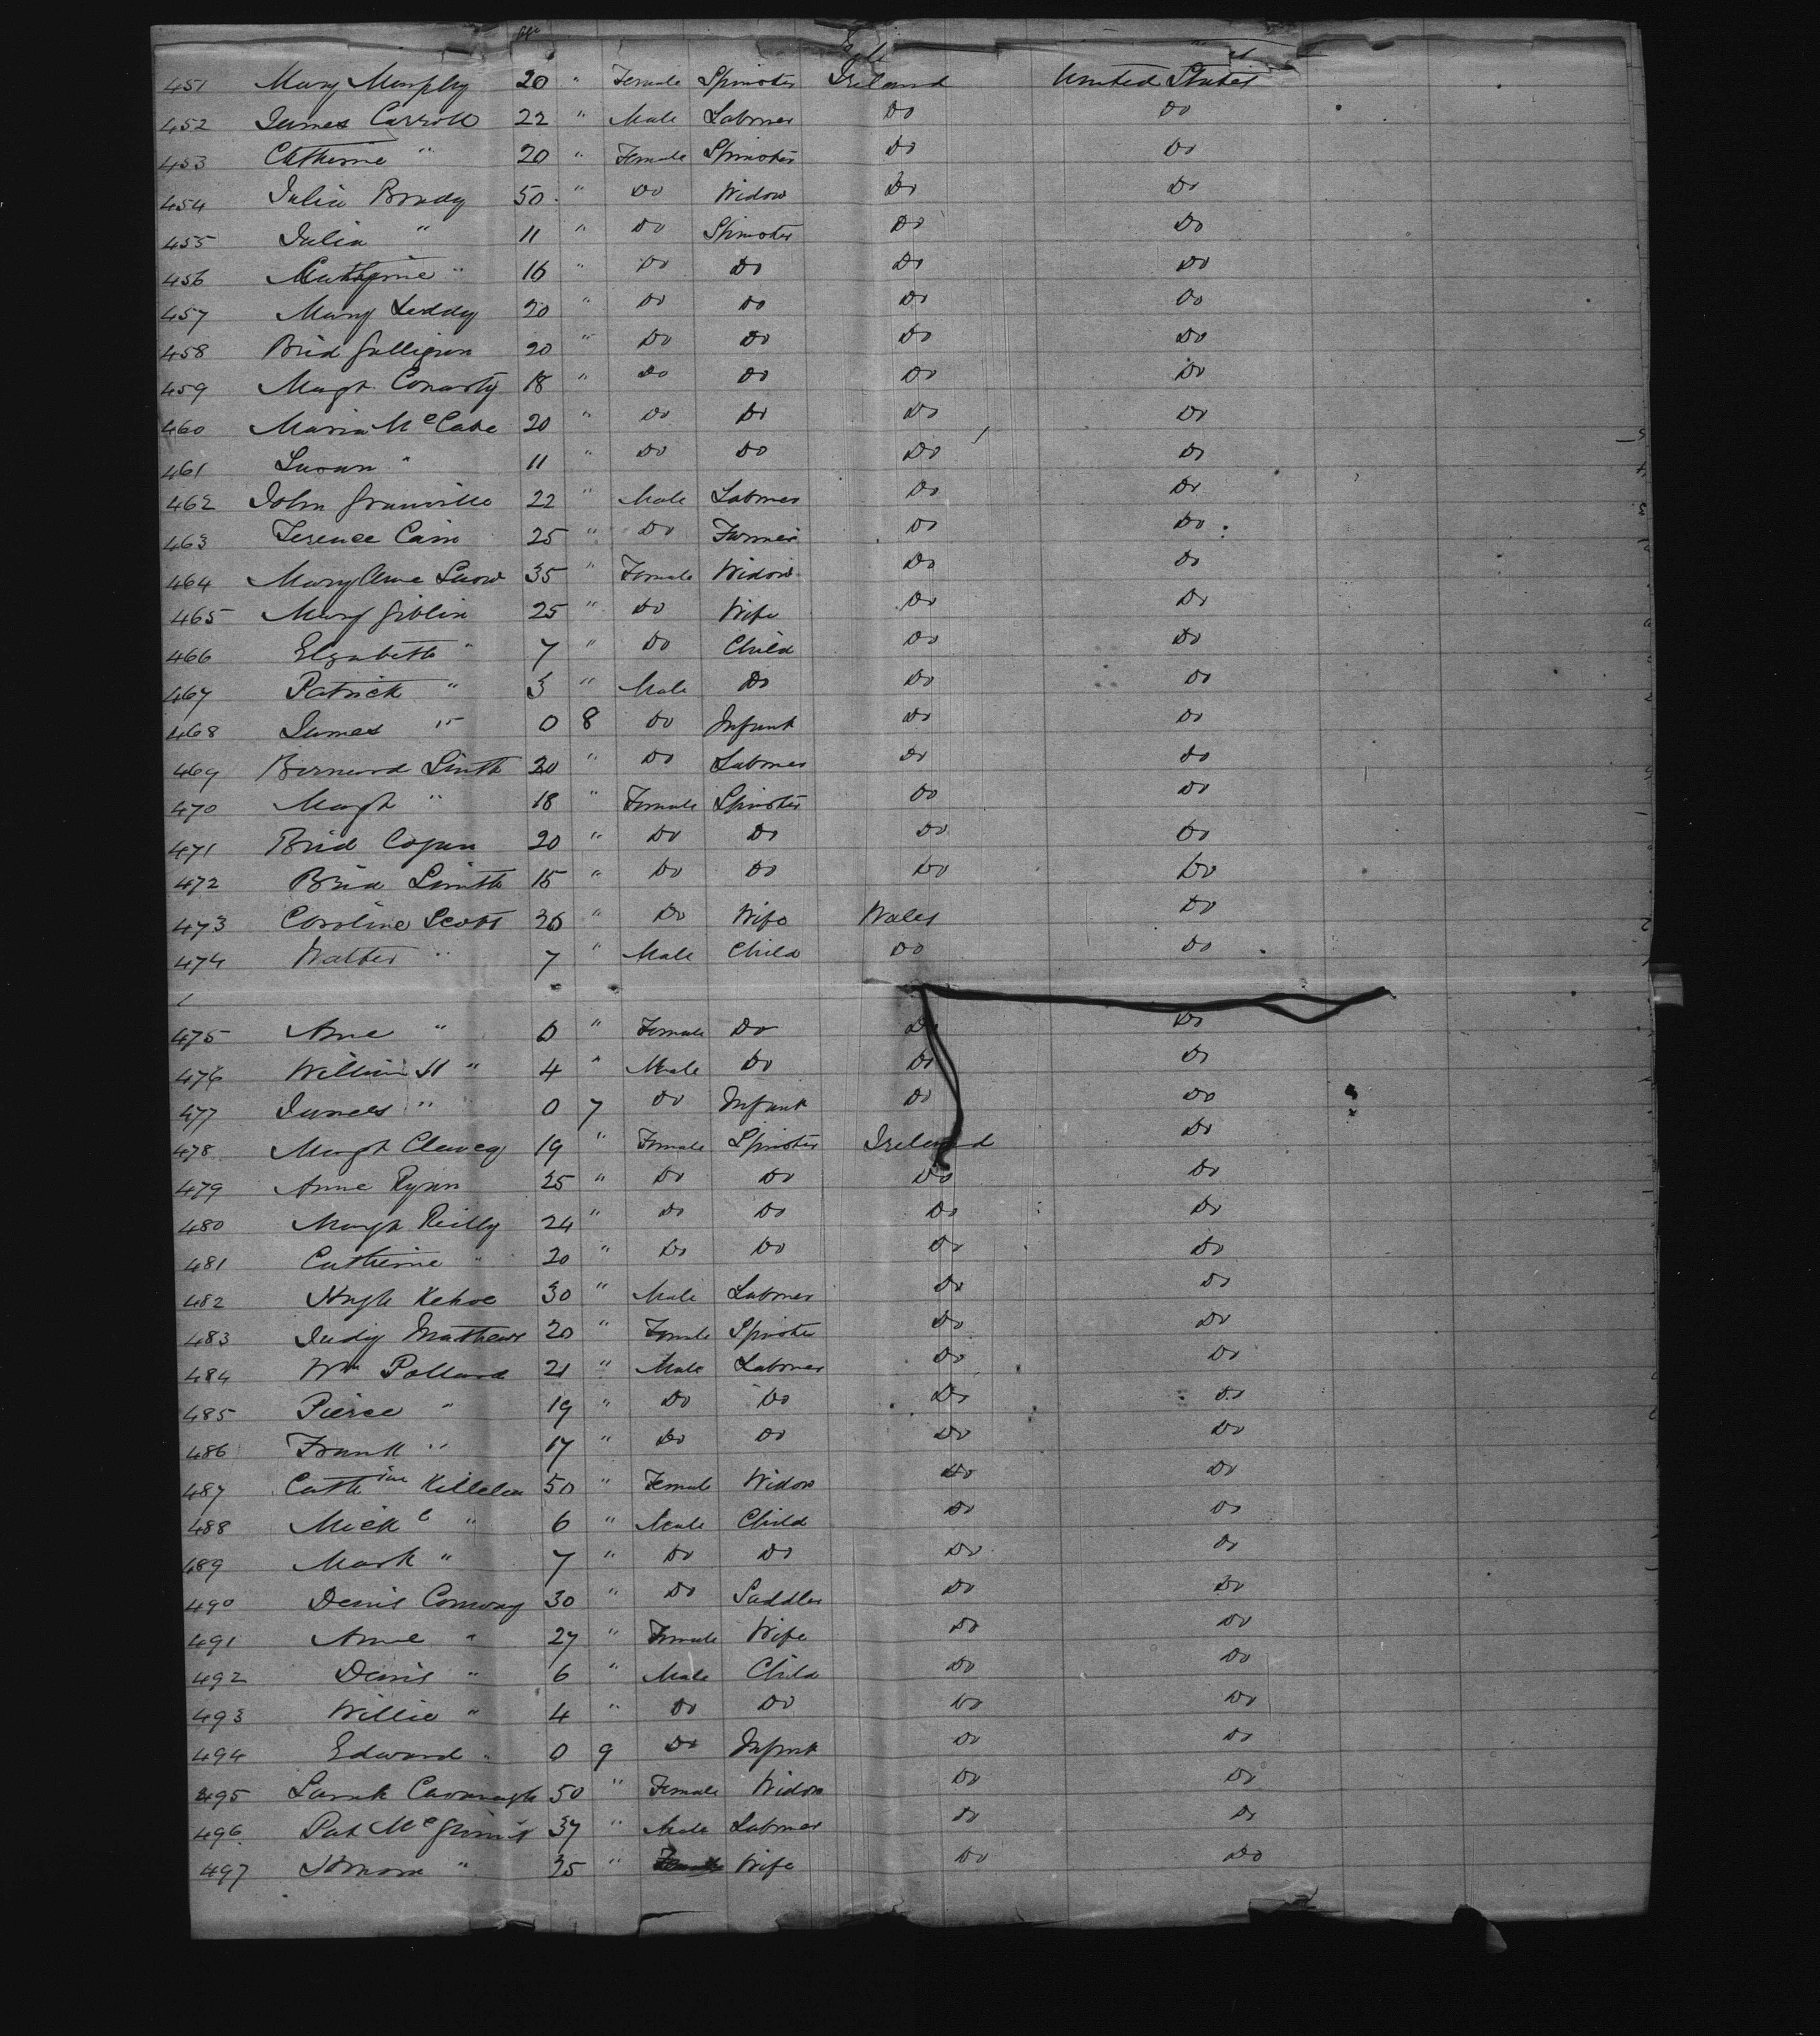 451 Mary Murphy 20 " Female Spinster Ireland United States
452 James Carroll 22 " Male Labourer Do Do
453 Catherine " 20 " Female Spinster Do Do
454 Julia Brady 50 " Do Widow Do Do
455 Julia " 11 " Do Spinster Do Do
456 Catherine " 16 " Do Do Do Do
457 Mary Leddy 20 " Do Do Do Do
458 Brid Galligan 20 " Do Do Do Do
459 Margt Conaty 18 " Do Do Do Do
460 Maria McCabe 20 " Do Do Do Do
461 Susan " 11 " Do Do Do Do
462 John Granville 22 " Male Labourer Do Do
463 Terence Cain 25 " Do Farmer Do Do
464 Mary Anne Snow 35 " Female Widow Do Do
465 Mary Giblin 25 " Do Wife Do Do
466 Elizabeth " 7 " Do Child Do Do
467 Patrick " 3 " Male Do Do Do
468 James " 0 8 Do Infant Do Do
469 Bernard Smith 20 " Do Labourer Do Do
470 Margt " 18 " Female Spinster Do Do
471 Brid Cogan 20 " Do Do Do Do
472 Brid Smith 15 " Do Do Do Do
473 Caroline Scott " Do Wife Wales Do
474 Walter " 7 " Male Child Do Do
475 Anne " " Female Do Do Do
476 William H " 4 " Male Do Do Do
477 James " 0 7 Do Infant Do Do
478 Margt 19 " Female Spinster Ireland Do
479 Anne Ryan 25 " Do Do Do Do
480 Margt Reilly 24 " Do Do Do Do
481 Catherine " 20 " Do Do Do Do
482 Hugh Kehoe 30 " Male Labourer Do Do
483 Judy Mathews 20 " Female Spinster Do Do
484 Wm Pollard 21 " Male Labourer Do Do
485 Pierce " 19 " Do Do Do Do
486 Frank " 17 " Do Do Do Do
487 Cathine Killelea 50 " Female Widow Do Do
488 Mick " 6 " Male Child Do Do
489 Mark " 7 " Do Do Do Do
490 Denis Conway 30 " Do Saddler Do Do
491 Anne " 27 " Female Wife Do Do
492 Denis " 6 " Male Child Do Do
493 Willie " 4 " Do Do Do Do
494 Edward " 0 9 Do Infant Do Do
495 Sarah Cavanagh 50 " Female Widow Do Do
496 Pat 37 " Male Labourer Do Do
497 " 25 " Female Wife Do Do